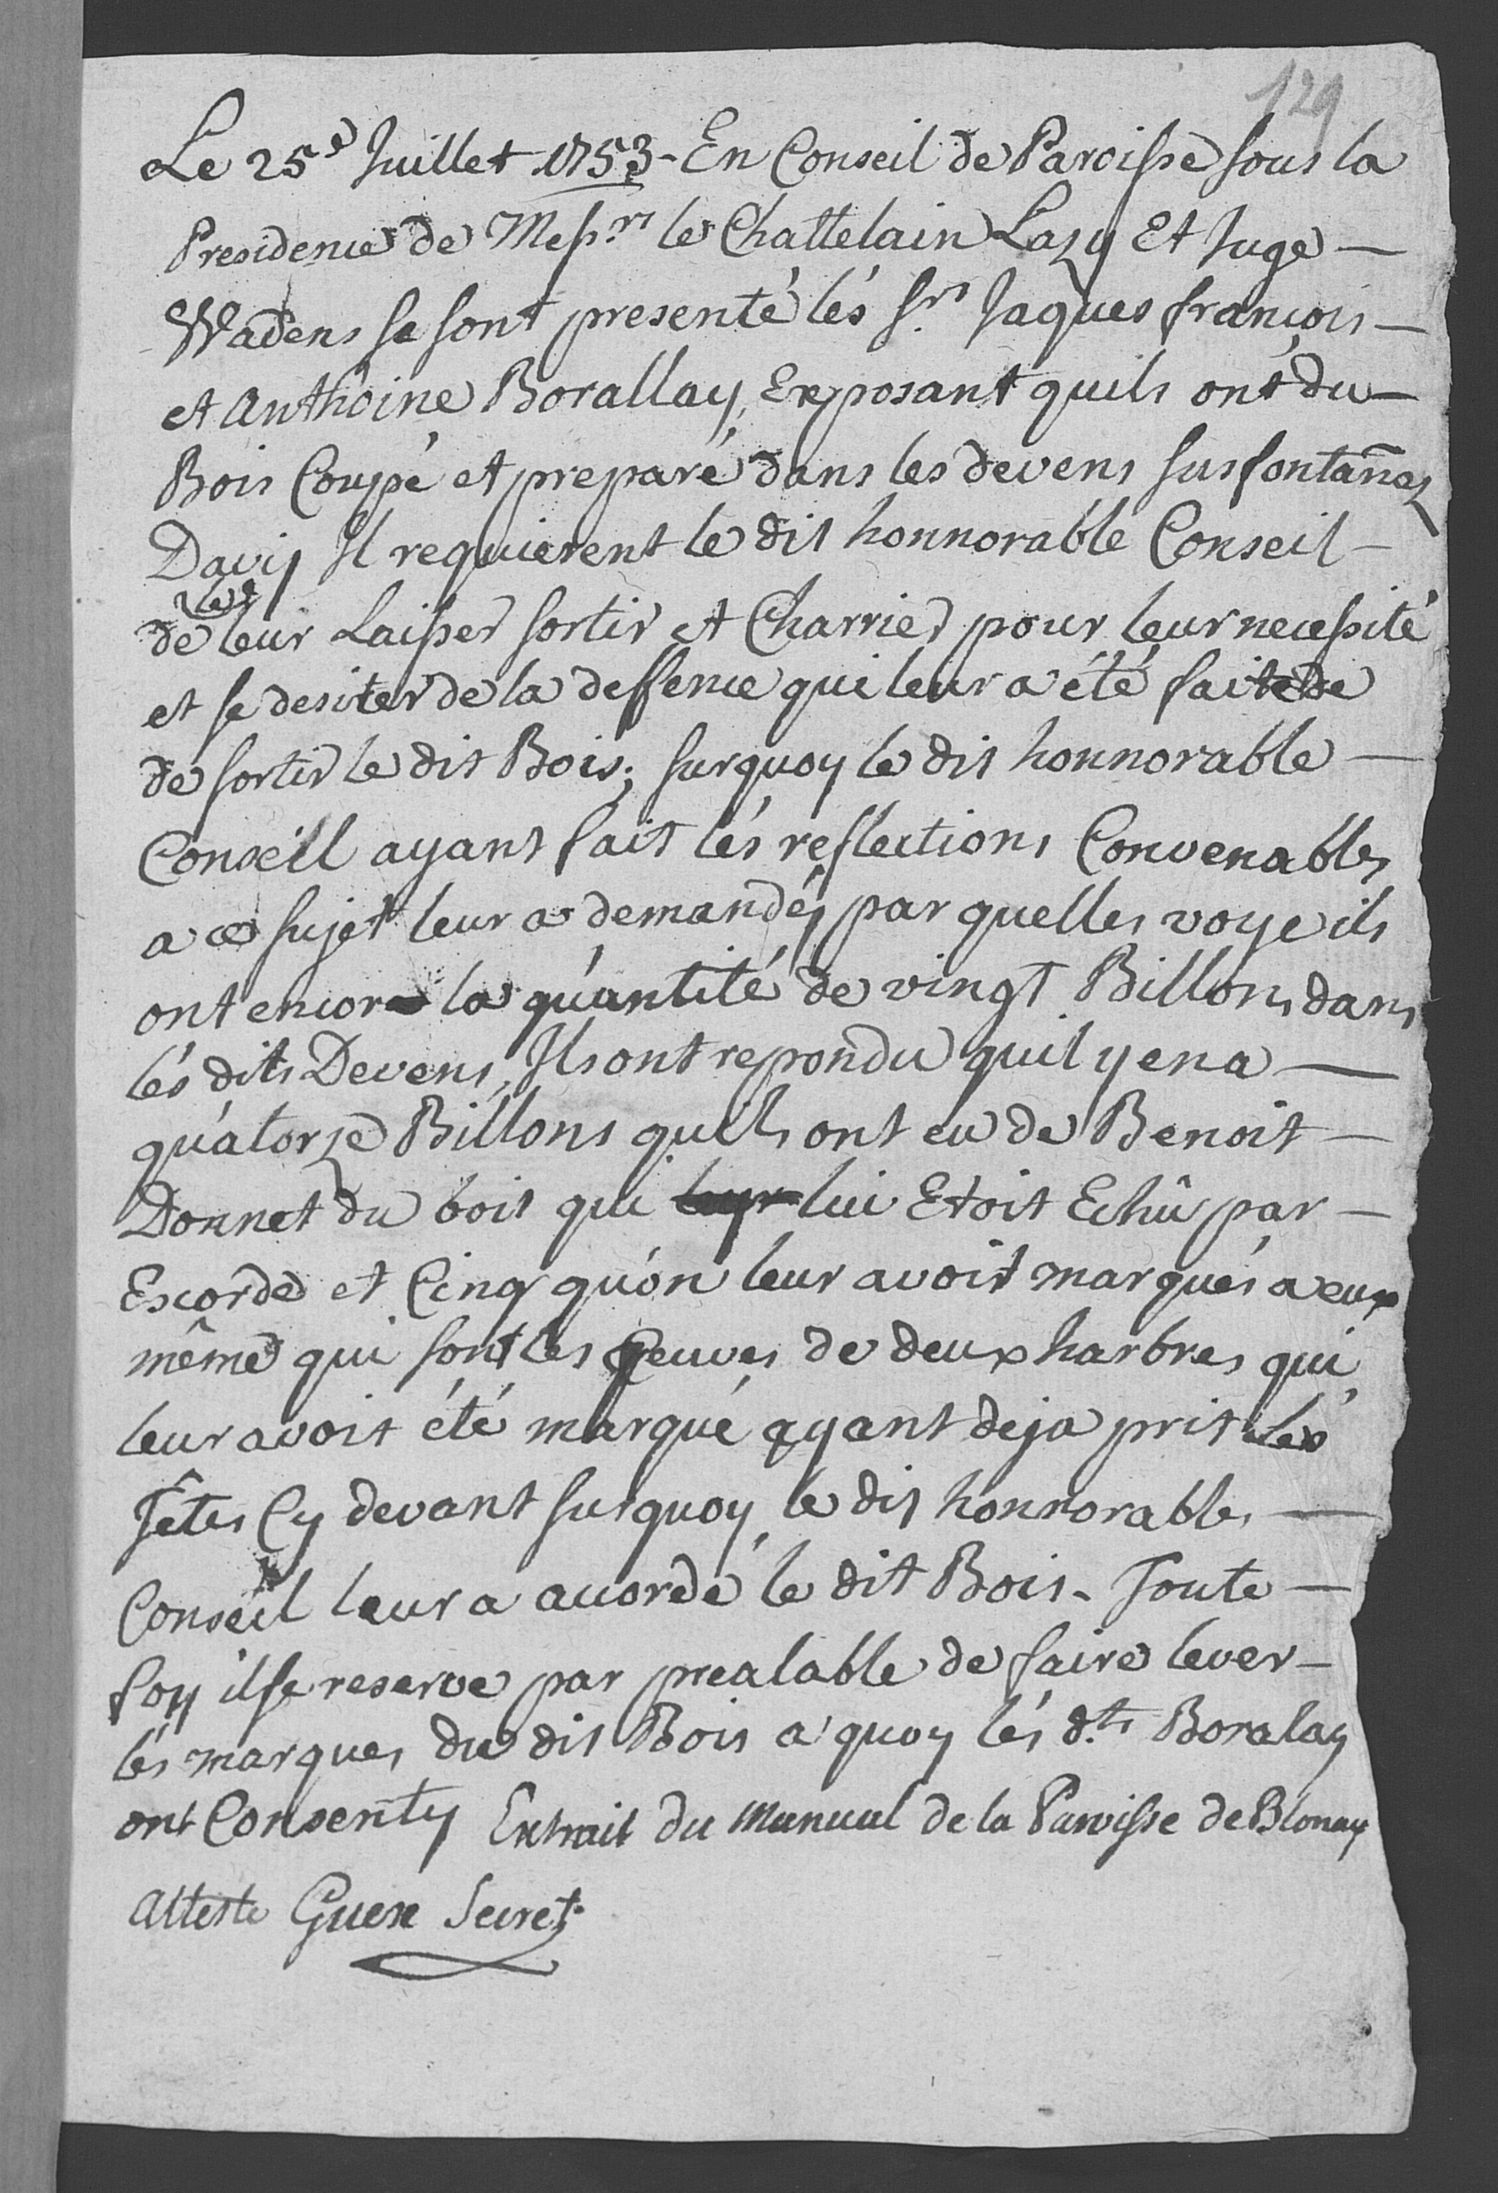 129
Le 25e Juillet 1753 - En Conseil de Paroisse sous la
Presidence de Messrs le Chattelain Lazy Et Juge —
Wadens se sont presenté lés Srs Jaques françois —
et Anthoine Borallay, Exposant quils ont du —
Bois Coupé et preparé dans les devens sus fontañes
Davij Il requierent le dit honnorable Conseil —
le
de leur Laisser sortir et Charrier pour leur necessité
et se desiter de la deffence qui leur a été faite de
de sortir le dit Bois; surquoy le dit honnorable —
Conseill ayant fait lés reflections Convenables
a ce sujet leur a demandéj par quelles voye ils
ont encore la quantité de vingt Billons dans
lés dits Devens, Ils ont repondu quil y en a —
quatorze Billons quils ont eu de Benoit —
Donnet du bois qui lui Etoit Echû par —
Escorde et Cinq qu'on leur avoit marqués a eux
même qui sont les de deux harbres qui
leur avoit été marqué ayant deja prit les
têtes Cy devant surquoy le dit honnorable —
Conseil leur a accordé le dit Bois - Toute —
foy il se reserve par prealable de faire lever —
lés marques du dit Bois a quoy lés dts Boralay
ont Consenty Extrait du Manual de la Paroisse de Blonay
Atteste Guex Secret.